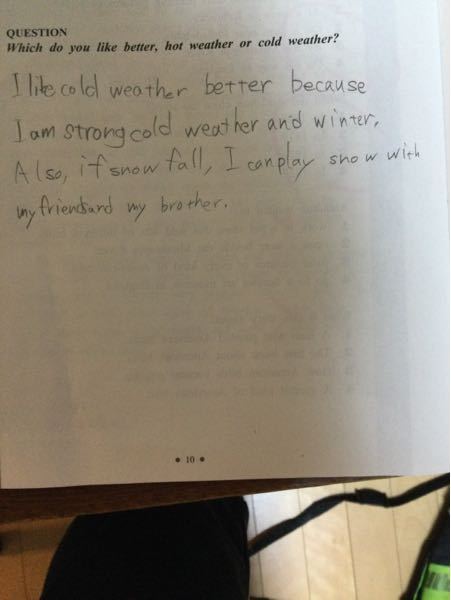 QUESTION
Which do you like better, hot weather or cold weather?
I like cold weather better because
I am strong cold weather and winter.
Also, if snow fall, I can play snow with
my friends and my brother.
• 10 •